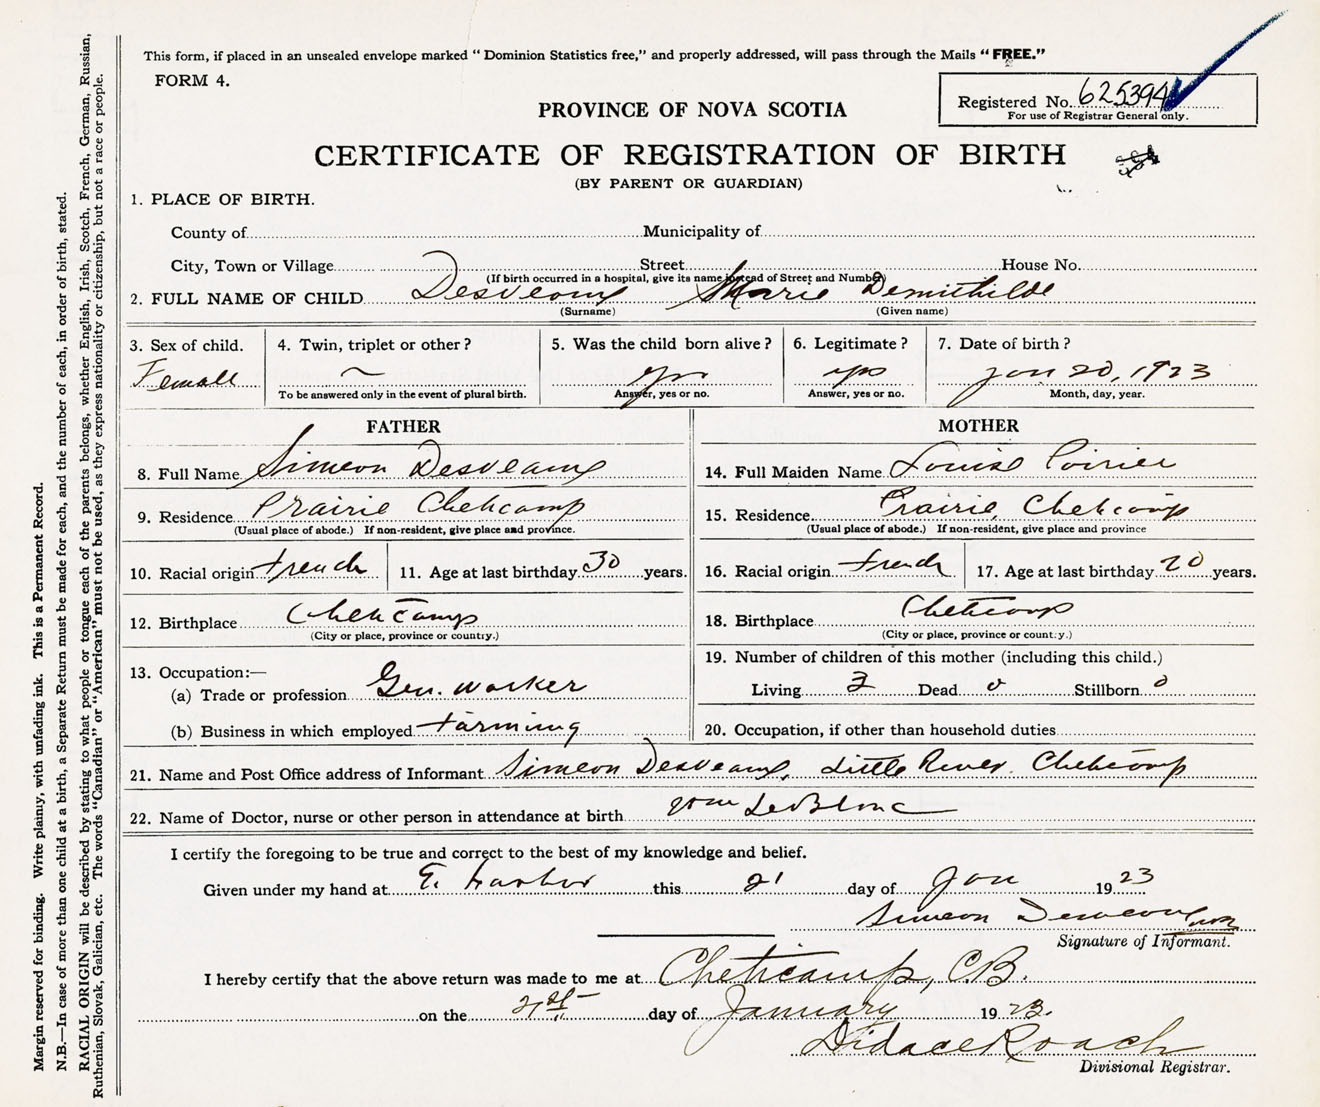 This form, if placed in an unsealed envelope marked "Dominion Statistics free," and properly addressed, will pass through the Mails "FREE."
FORM 4.
Registered No. 625394
For use of Registrar General only.
PROVINCE OF NOVA SCOTIA
CERTIFICATE OF REGISTRATION OF BIRTH
(BY PARENT OR GUARDIAN)
1. PLACE OF BIRTH.
County of Municipality of
City, Town or Village Street House No.
(If birth occurred in a hospital, give its name instead of Street and Number)
2. FULL NAME OF CHILD Desveaux Marie Demithilde
(Surname) (Given name)
3. Sex of child. 4. Twin, triplet or other? 5. Was the child born alive? 6. Legitimate? 7. Date of birth?
Female ~ yes yes Jan 20, 1923
To be answered only in the event of plural birth. Answer, yes or no. Answer, yes or no. Month, day, year.
FATHER MOTHER
8. Full Name Simeon Desveaux 14. Full Maiden Name Louise Poirier
9. Residence Prairie Cheticamp 15. Residence Prairie, Cheticamp
(Usual place of abode.) If non-resident, give place and province. (Usual place of abode.) If non-resident, give place and province
10. Racial origin French 11. Age at last birthday 30 years. 16. Racial origin French 17. Age at last birthday 20 years.
12. Birthplace Cheticamp 18. Birthplace Cheticamp
(City or place, province or country.) (City or place, province or country.)
13. Occupation:— 19. Number of children of this mother (including this child.)
(a) Trade or profession Gen. Worker Living Dead 0 Stillborn 0
(b) Business in which employed Farming 20. Occupation, if other than household duties
21. Name and Post Office address of Informant Simeon Desveaux, Little River. Cheticamp
22. Name of Doctor, nurse or other person in attendance at birth Wm LeBlanc
I certify the foregoing to be true and correct to the best of my knowledge and belief.
Given under my hand at E. Harbor this 21 day of Jan 1923
Simeon Desveaux
Signature of Informant.
I hereby certify that the above return was made to me at Cheticamp, C.B.
on the 21st day of January 1923.
Didace Roach
Divisional Registrar.
Margin reserved for binding. Write plainly, with unfading ink. This is a Permanent Record.
N.B.—In case of more than one child at a birth, a Separate Return must be made for each, and the number of each, in order of birth, stated.
RACIAL ORIGIN will be described by stating to what people or tongue each of the parents belongs, whether English, Irish, Scotch, French, German, Russian,
Ruthenian, Slovak, Galician, etc. The words "Canadian" or "American" must not be used, as they express nationality or citizenship, but not a race or people.